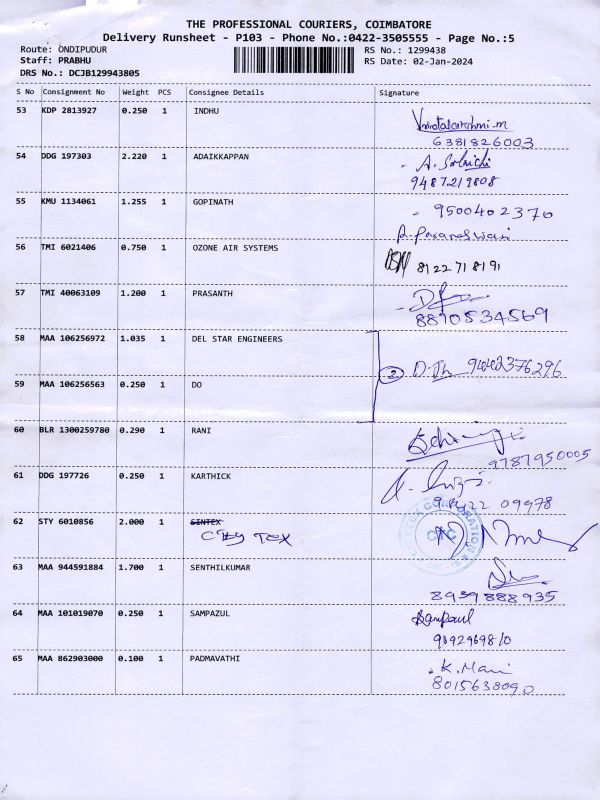 THE PROFESSIONAL COURIERS, COIMBATORE
Delivery Runsheet - P103 - Phone No.:0422-3505555 - Page No.:5
Route: ONDIPUDUR RS No.: 1299438
Staff: PRABHU RS Date: 02-Jan-2024
DRS No.: DCJB129943805
S No Consignment No Weight PCS Consignee Details Signature
53 KDP 2813927 0.250 1 INDHU
6381826003
54 DDG 197303 2.220 1 ADAIKKAPPAN
9487219808
55 KMU 1134061 1.255 1 GOPINATH
9500402370
56 TMI 6021406 0.750 1 OZONE AIR SYSTEMS
8122718191
57 TMI 40063109 1.200 1 PRASANTH
8890534569
58 MAA 106256972 1.035 1 DEL STAR ENGINEERS
2 9442376296
59 MAA 106256563 0.250 1 DO
60 BLR 1300259780 0.290 1 RANI
9787950005
61 DDG 197726 0.250 1 KARTHICK
09978
62 STY 6010856 2.000 1 SINTEX
City TEX
63 MAA 944591884 1.700 1 SENTHILKUMAR
8939888935
64 MAA 101019070 0.250 1 SAMPAZUL
Sampaul
9692969810
65 MAA 862903000 0.100 1 PADMAVATHI
K. Mani
8015638090